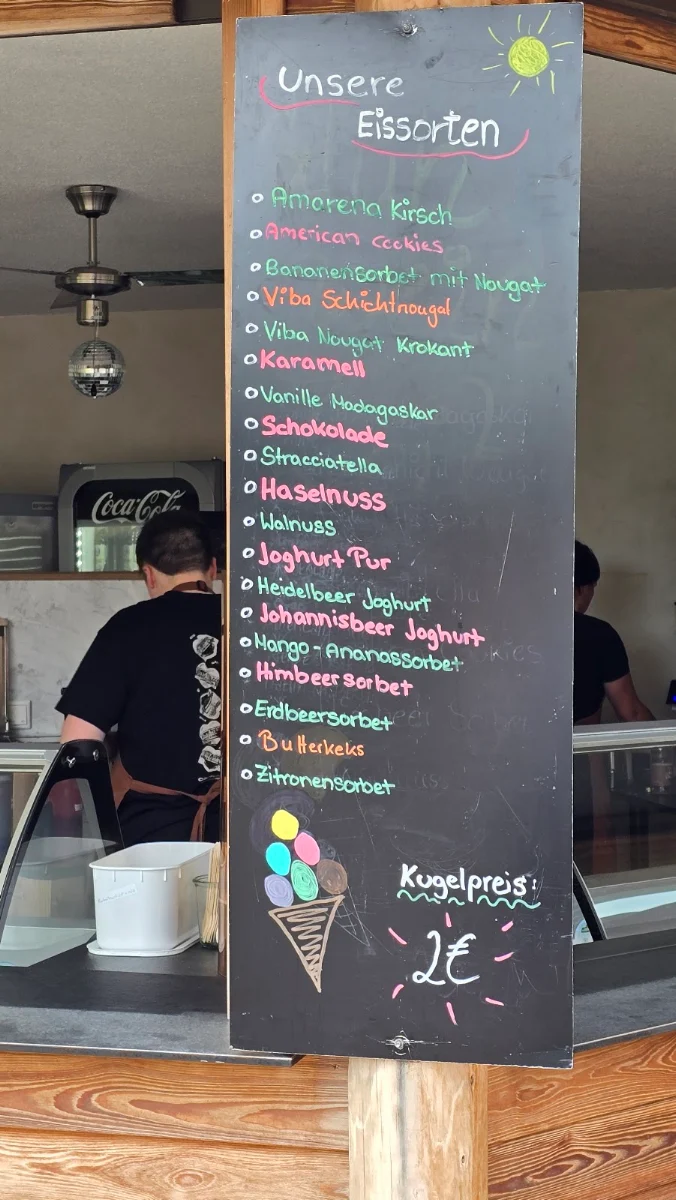 Unsere
Eissorten
Amarena Kirsch
American Cookies
Bananensorbet mit Nougat
Viba Schichtnougat
Viba Nougat Krokant
Karamell
Vanille Madagaskar
Schokolade
Stracciatella
Haselnuss
Walnuss
Joghurt Pur
Heidelbeer Joghurt
Johannisbeer Joghurt
Mango-Ananassorbet
Himbeersorbet
Erdbeersorbet
Butterkeks
Zitronensorbet
Kugelpreis:
2€
Coca-Cola